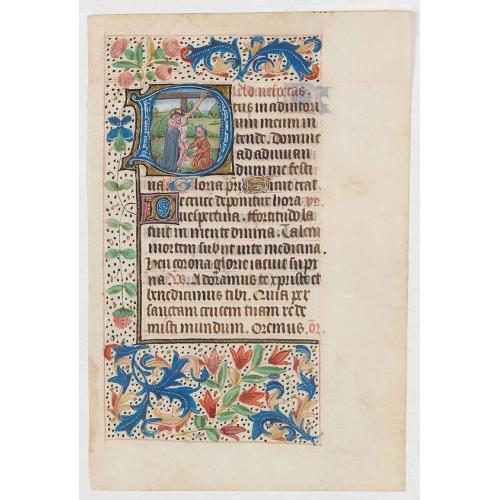 Ad vesperas
Deus in adiutori
um meum in
tende. Domine
ad adiuuan
dum me festi
na Gloria pri Sicut erat
De cruce deponitur hora
uespertina. ffortitudo la
tuit in mente diuina. Talem
mortem subijt uite medicina
heu corona glorie iacuit supi
na. V. Adoramus te xpriste et
benedicimus tibi. Quia per
sanctam crucem tuam rede
misti mundum. Oremus. or.